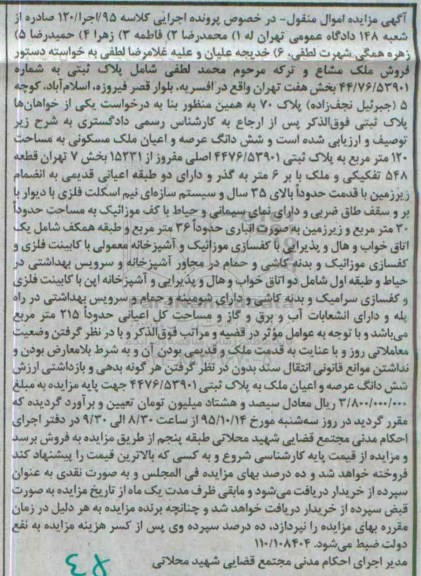 آگهی مزایده اموال منقول- در خصوص پرونده اجرایی کلاسه ۹۵/اجرا/۱۲۰ صادره از
شعبه ۱۴۸ دادگاه عمومی تهران له ۱) محمدرضا ۲) فاطمه ۳) زهرا ۴) حمیدرضا ۵)
زهره همگی شهرت لطفی، ۶) خدیجه علیان و علیه غلامرضا لطفی به خواسته دستور
فروش ملک مشاع و ترکه مرحوم محمد لطفی شامل پلاک ثبتی به شماره
۴۴/۷۶/۵۳۹۰۱ بخش هفت تهران واقع در افسریه، بلوار قصر فیروزه، اسلام‌آباد، کوچه
۵ (جبرئیل نجف‌زاده) پلاک ۷۰ به همین منظور بنا به درخواست یکی از خواهان‌ها
پلاک ثبتی فوق‌الذکر پس از ارجاع به کارشناس رسمی دادگستری به شرح زیر
توصیف و ارزیابی شده است و شش دانگ عرصه و اعیان ملک مسکونی به مساحت
۱۲۰ متر مربع به پلاک ثبتی ۴۴۷۶/۵۳۹۰۱ اصلی مفروز از ۱۵۲۳۱ بخش ۷ تهران قطعه
۵۴۸ تفکیکی و ملک با بر ۶ متر به گذر و دارای دو طبقه اعیانی قدیمی به انضمام
زیرزمین با قدمت حدوداً بالای ۳۵ سال و سیستم سازه‌ای نیم اسکلت فلزی با دیوار با
بر و سقف طاق ضربی و دارای نمای سیمانی و حیاط با کف موزائیک به مساحت حدوداً
۳۰ متر مربع و زیرزمین به صورت انباری حدوداً ۳۶ متر مربع و طبقه همکف شامل یک
اتاق خواب و هال و پذیرایی با کفسازی موزائیک و آشپزخانه معمولی با کابینت فلزی و
کفسازی موزائیک و بدنه کاشی و حمام در مجاور آشپزخانه و سرویس بهداشتی در
حیاط و طبقه اول شامل دو اتاق خواب و هال و پذیرایی و آشپزخانه اپن با کابینت فلزی
و کفسازی سرامیک و بدنه کاشی و دارای شومینه و حمام و سرویس بهداشتی در راه
پله و دارای انشعابات آب و برق و گاز و مساحت کل اعیانی حدوداً ۲۱۵ متر مربع
می‌باشد و با توجه به عوامل مؤثر در قضیه و مراتب فوق‌الذکر و با در نظر گرفتن وضعیت
معاملاتی روز و با عنایت به قدمت ملک و قدیمی بودن آن و به شرط بلامعارض بودن و
نداشتن موانع قانونی انتقال سند بدون در نظر گرفتن هر گونه بدهی و بازداشتی ارزش
شش دانگ عرصه و اعیان ملک به پلاک ثبتی ۴۴۷۶/۵۳۹۰۱ جهت پایه مزایده به مبلغ
۳/۸۰۰/۰۰۰/۰۰۰ ریال معادل سیصد و هشتاد میلیون تومان تعیین و برآورد گردیده که
مقرر گردید در روز سه‌شنبه مورخ ۹۵/۱۰/۱۴ از ساعت ۸/۳۰ الی ۹/۳۰ در دفتر اجرای
احکام مدنی مجتمع قضایی شهید محلاتی طبقه پنجم از طریق مزایده به فروش برسد
و مزایده از قیمت پایه کارشناسی شروع و به کسی که بالاترین قیمت را پیشنهاد کند
فروخته خواهد شد و ده درصد بهای مزایده فی المجلس و به صورت نقدی به عنوان
سپرده از خریدار دریافت می‌شود و مابقی ظرف مدت یک ماه از تاریخ مزایده به صورت
قبض سپرده از خریدار دریافت خواهد شد و چنانچه برنده مزایده به هر دلیل در زمان
مقرره بهای مزایده را نپردازد، ده درصد سپرده وی پس از کسر هزینه مزایده به نفع
دولت ضبط می‌شود. ۱۱۰/۱۰۸۴۰۴
مدیر اجرای احکام مدنی مجتمع قضایی شهید محلاتی